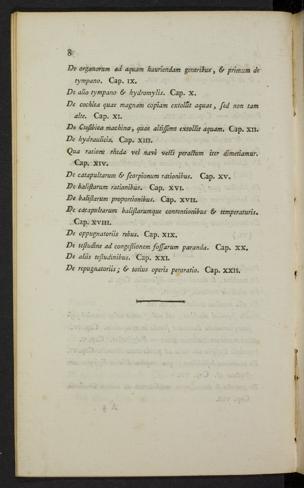 8
De organorum ad aquam hauriendam generibus, & primum de
tympano. Cap. IX.
De alio tympano & hydromylis. Cap. X.
De cochlea quae magnam copiam extollit aquae, sed non tam
alte. Cap. XI.
De Ctesibica machina, quae altissime extollit aquam. Cap. XII.
De hydraulicis. Cap. XIII.
Qua ratione rheda vel navi vecti peractum iter dimetiamur.
Cap. XIV.
De catapultarum & scorpionum rationibus. Cap. XV.
De balistarum rationibus. Cap. XVI.
De balistarum proportionibus. Cap. XVII.
De catapultarum balistarumque contentionibus & temperaturis.
Cap. XVIII.
De oppugnatoriis rebus. Cap. XIX.
De testudine ad congestionem fossarum paranda. Cap. XX.
De aliis testudinibus. Cap. XXI.
De repugnatoriis; & totius operis peroratio. Cap. XXII.